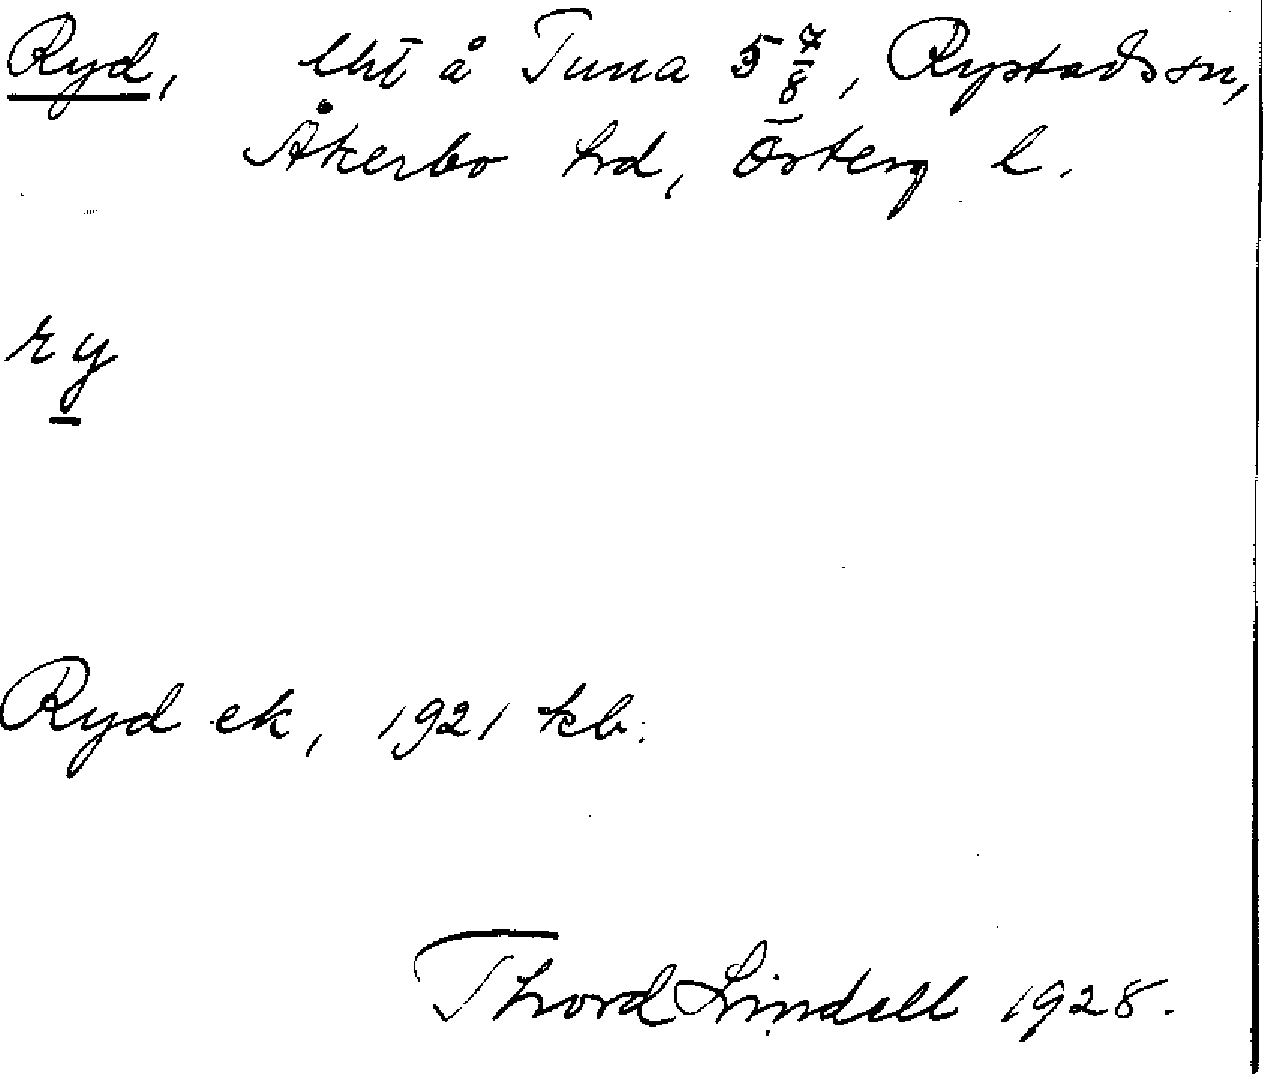 Ryd, lht å Tuna 5 7/8, Rystads sn,
Åkerbo hd, Österg l.
ry
Ryd ek, 1921 kb.
Thord Lindell 1928.